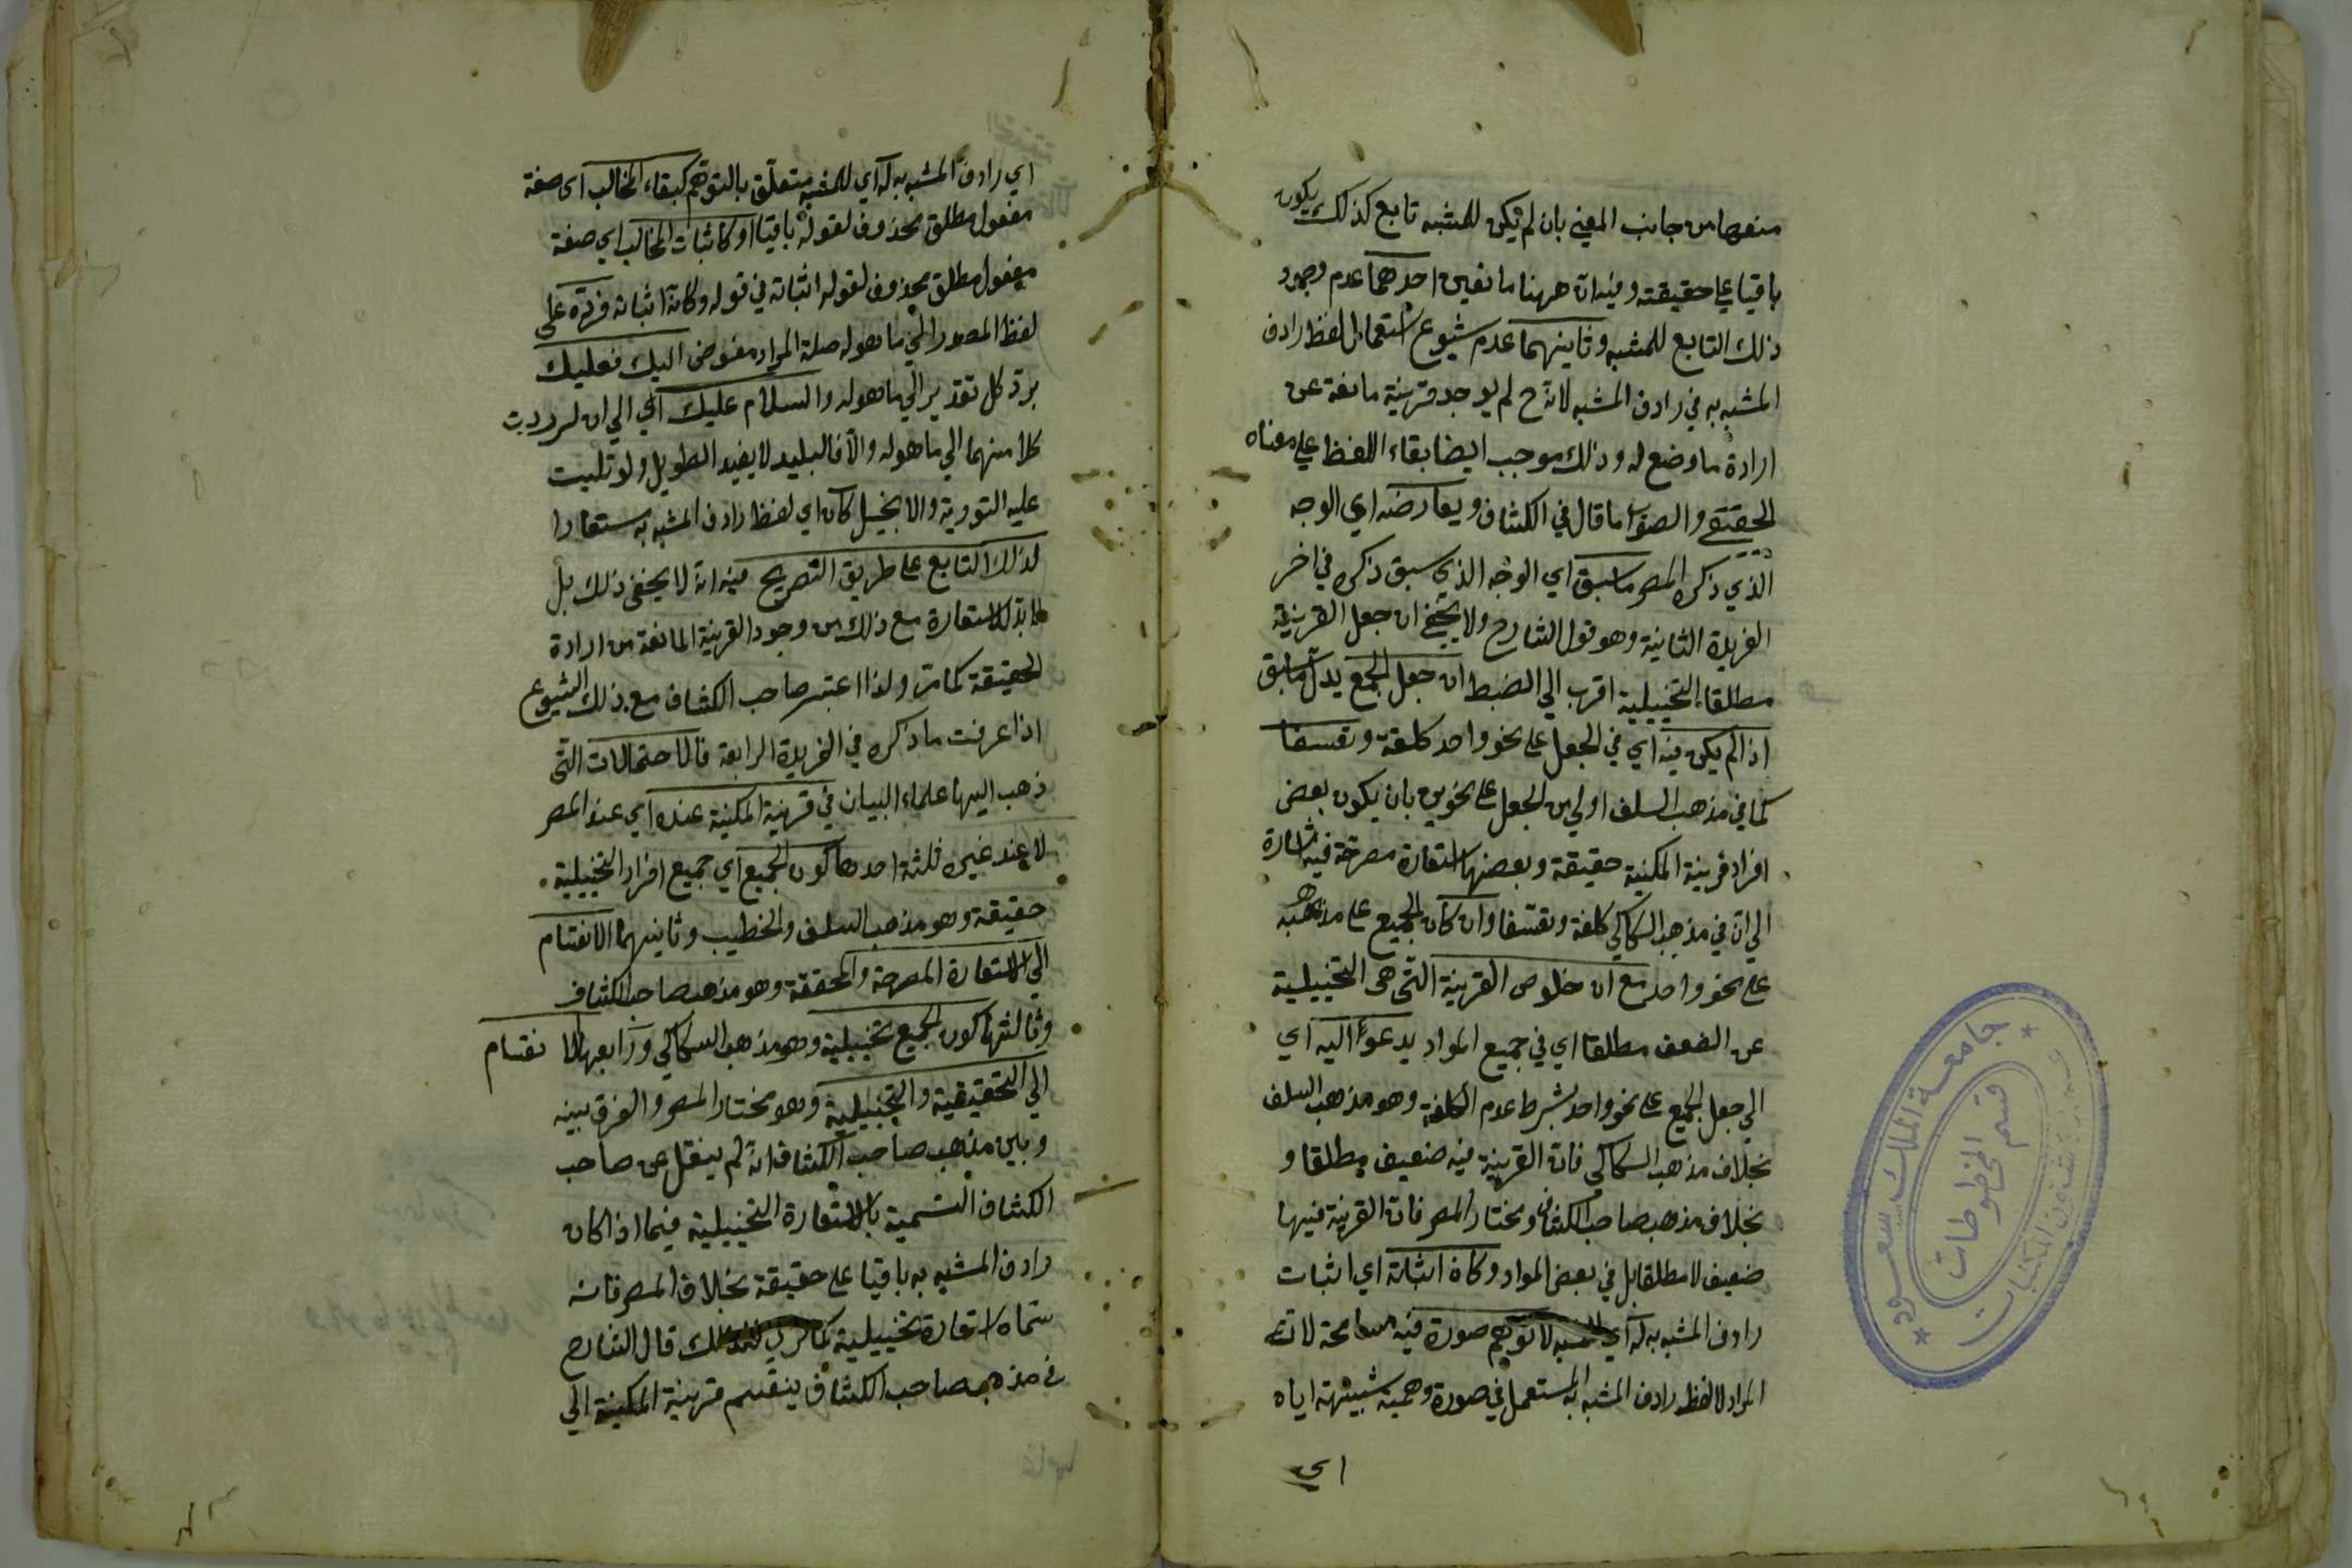 منعها من جانب المعنى بان لم يكن للمشبه تابع كذلك يكون
باقيا على حقيقته وفيه ان ههنا مانعين احدهما عدم وجود
ذلك التابع للمشبه وثانيهما عدم شيوع استعمال لفظ رادف
المشبه به في رادف المشبه لانه ح لم يوجد قرينة مانعة عن
ارادة ما وضع له وذلك موجب ايضا بقاء اللفظ على معناه
الحقيقي والصواب ما قال في الكشاف ويعارضه اي الوجه
الذي ذكره المصر ما سبق اي الوجه الذي سبق ذكره في اخر
الفريدة الثانية وهو قول الشارح ولا يخفى ان جعل القرينة
مطلقا التخييلية اقرب الى الضبط ان جعل الجمع يدل ما سبق
اذا لم يكن فيه اي في الجعل على نحو واحد كلفة وتعسفا
كما في مذهب السلف اولى من الجعل على نحوين بان يكون بعض
افراد قرينة المكنية حقيقة وبعضها استعارة مصرحة فيه اشارة
الى ان في مذهب السكاكي كلفة وتعسفا وان كان الجميع على مذهبه
على نحو واحد مع ان خلوص القرينة التي هي التخييلية
عن الضعف مطلقا اي في جميع المواد يدعو اليه اي
الى جعل الجميع على نحو واحد بشرط عدم الكلفة وهو مذهب السلف
بخلاف مذهب السكاكي فان القرينة فيه ضعيف مطلقا و
بخلاف مذهب صاحب الكشاف ومختار المصر فان القرينة فيها
ضعيف لا مطلقا بل في بعض المواد وكان اثباته اي اثبات
رادف المشبه به له اي للمشبه لا توهم صورة فيه مسامحة لانه
المراد لا لفظ رادف المشبه به المستعمل في صورة وهمية شبيهة اياه
اي
جامعة الملك سعود
قسم المخطوطات
عمادة شئون المكتبات
اي رادف المشبه به له اي للمشبه متعلق بالتوهم كبقاء المخالب اي صفة
مفعول مطلق محذوف لقوله باقيا او كاثبات المخالب اي صفة
مفعول مطلق محذوف لقوله اثباته في قوله وكان اثباته فرده على
لفظ المصدر الى ما هو له صلة المراد مفوض اليك فعليك
برد كل تقدير الى ما هو له والسلام عليك اي الى ان لرددت
كلا منهما الى ما هو له والا فالبليد لا يفيد الطويل ولو تليت
عليه التورية والانجيل كان اي لفظ رادف المشبه به مستعارا
لذلك التابع على طريق التصريح فيه انه لا يخفى ذلك بل
لا بد للاستعارة مع ذلك من وجود القرينة المانعة من ارادة
الحقيقة كما مر ولذا اعتبر صاحب الكشاف مع ذلك الشيوع
اذا عرفت ما ذكره في الفريدة الرابعة فالاحتمالات التي
ذهب اليها علماء البيان في قرينة المكنية عنده اي عند المصر
لا عند غيره ثلثة احدها كون الجميع اي جميع افراد التخييلية
حقيقة وهو مذهب السلف والخطيب وثانيهما الانقسام
الى الاستعارة المصرحة والمحققة وهو مذهب صاحب الكشاف
وثالثها كون الجميع تخييلية وهو مذهب السكاكي ورابعها الا نقسام
الى التحقيقية والتخييلية وهو مختار المصر والفرق بينه
وبين مذهب صاحب الكشاف انه لم ينقل عن صاحب
الكشاف التسمية بالاستعارة التخييلية فيما اذا كان
رادف المشبه به باقيا على حقيقة بخلاف المصر فانه
سماه استعارة تخييلية كما قال الشارح
في مذهب صاحب الكشاف ينقسم قرينة المكنية الى